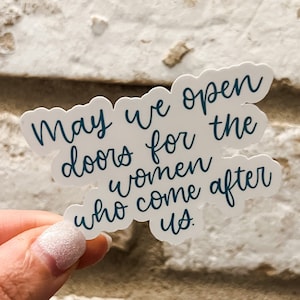 May we open
doors for the
women
who come after
us.